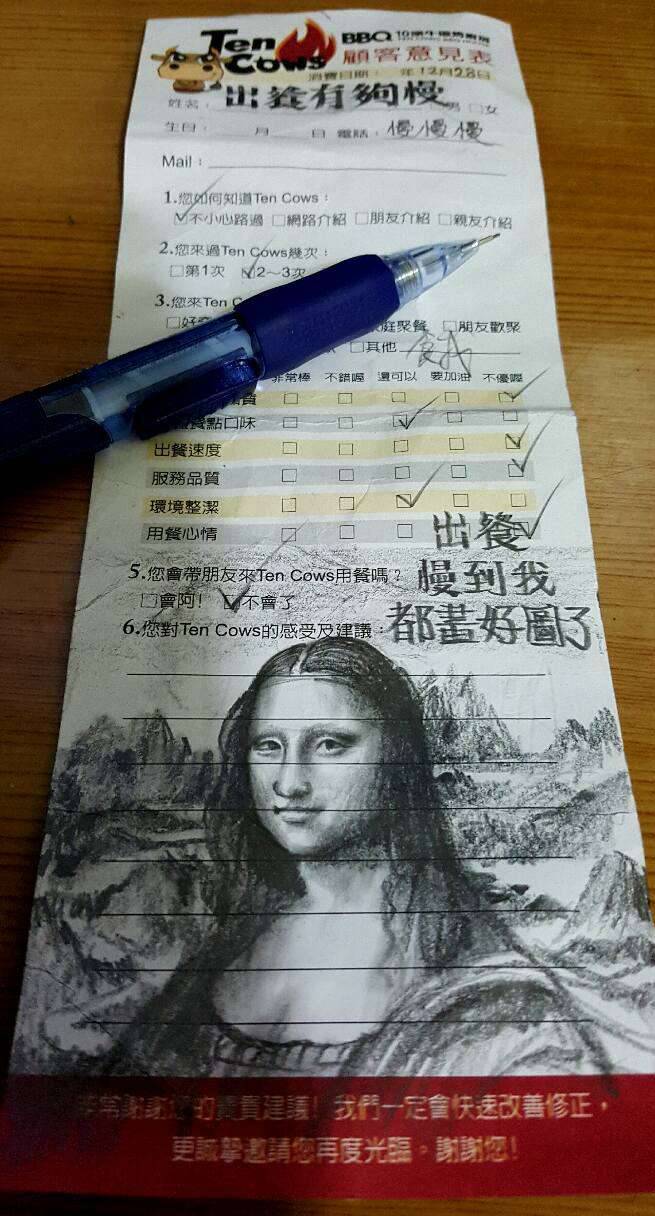 Ten Cows BBQ
顧客意見表
消費日期： 年12月28日
姓名： 出餐有夠慢 男 □女
生日： 月 日 電話： 慢慢慢
Mail：
1.您如何知道Ten Cows：
☑不小心路過 □網路介紹 □朋友介紹 □親友介紹
2.您來過Ten Cows幾次：
□第1次 ☑2～3次
3.您來Ten C
□好 庭聚餐 □朋友歡聚
□其他
非常棒 不錯喔 還可以 要加油 不優喔
質 □ □ □ □ ☑
餐點口味 □ □ ☑ □ □
出餐速度 □ □ □ □ ☑
服務品質 □ □ □ □ ☑
環境整潔 □ □ ☑ □ □
用餐心情 □ □ □ □ ☑
出餐
慢到我
都畫好圖了
5.您會帶朋友來Ten Cows用餐嗎？
□會阿！ ☑不會了
6.您對Ten Cows的感受及建議：
非常謝謝您的寶貴建議！我們一定會快速改善修正，
更誠摯邀請您再度光臨。謝謝您！